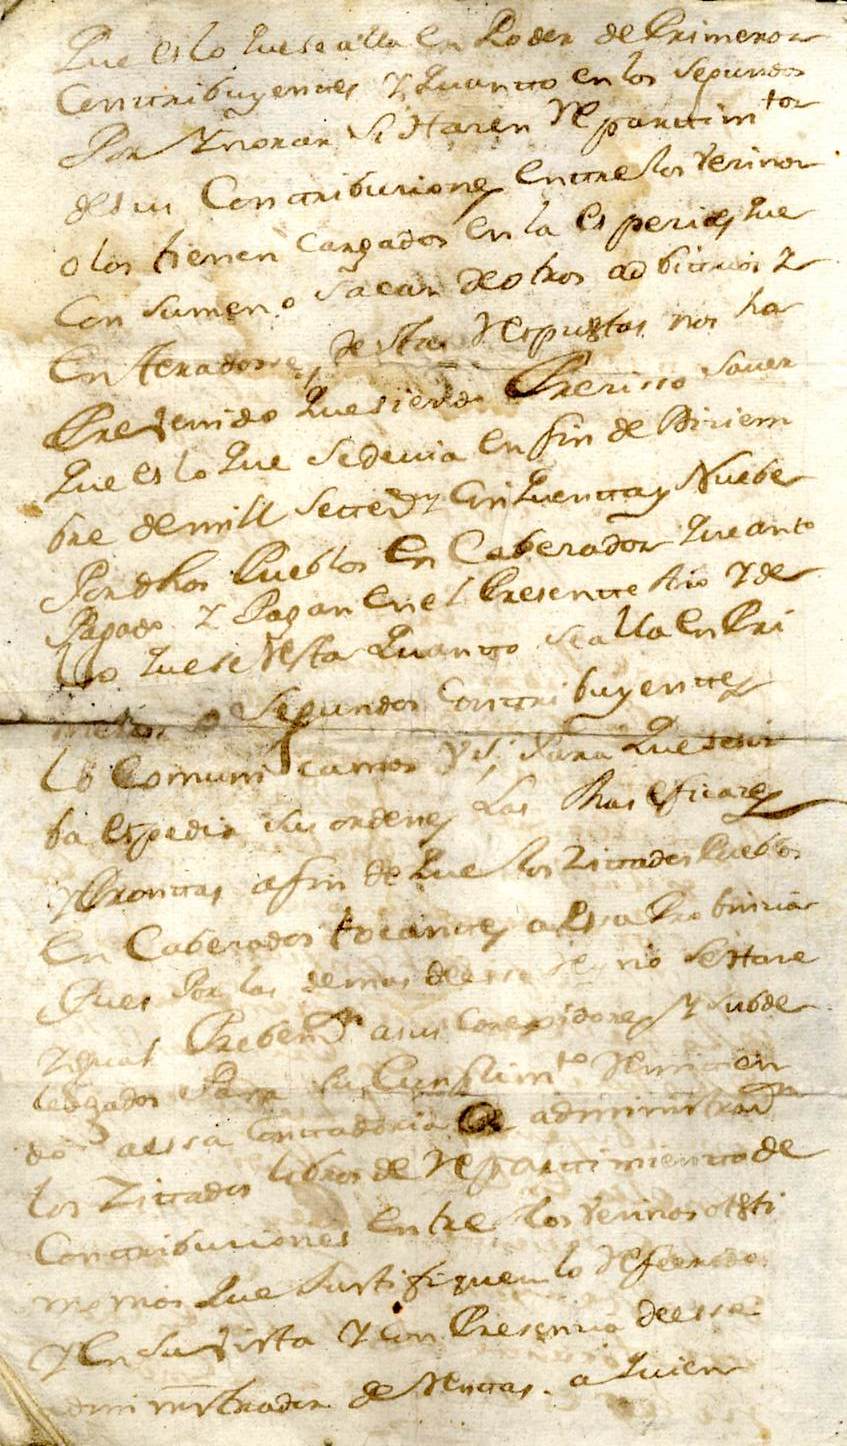 Que es lo que se alla en Poder de Primeros
Contribuyentes y quanto en los segundos
Por Ynorar si Hazen Repartimtos
de sus Contribuciones entre los Vecinos
o los tienen cargados en la especies que
Con sumen o sacan de otros adbitrios y
Enterados de estas Respuestas nos ha
Prevenido que siendo Preciso saver
que es lo que se devia en fin de Diziem
bre de mill settecs y cinquenta y Nuebe
Por dhos Pueblos en Cabezados quanto
Pagado y Pagan en el Presente Año y de
lo que se Resta quanto se alla en Pri
meros o Segundos Contribuyentes
lo Comunicamos V.S. Para que se sir
ba espedir sus ordenes las mas eficazes
y Promtas a fin de que los Zittados Pueblos
En Cabezados tocantes a essa Probincia
Pues Por las demas de esse Reyno se Hace
Ygual Prebenon a sus Corexidores y subde
legados Para su Cumplimto Remitien
do a essa Conttaduria de administraon
los Zittados libros de Repartimiento de
Contribuciones entre los Vecinos o testi
monios que Justifiquen lo Referido
y en su Vista y con Presencia de esse
administrador de Renttas a quien